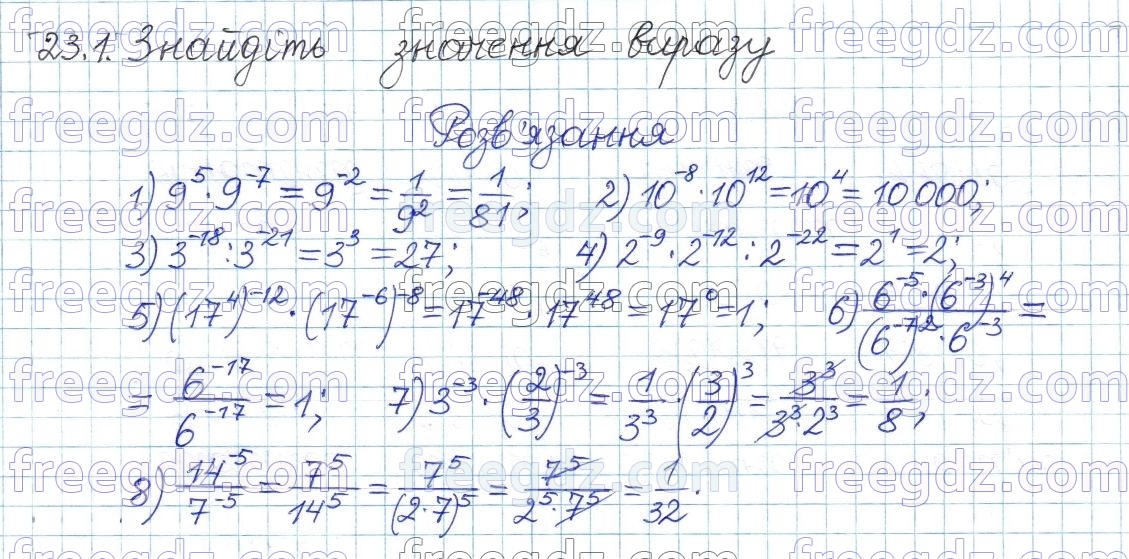 23.1. Знайдіть значення виразу
Розв'язання
1) 9⁵ · 9⁻⁷ = 9⁻² = 1/9² = 1/81; 2) 10⁻⁸ · 10¹² = 10⁴ = 10 000;
3) 3⁻¹⁸ : 3⁻²¹ = 3³ = 27; 4) 2⁻⁹ · 2⁻¹² : 2⁻²² = 2¹ = 2;
5) (17⁴)⁻¹² · (17⁻⁶)⁻⁸ = 17⁻⁴⁸ · 17⁴⁸ = 17⁰ = 1; 6) 6⁻⁵ · (6⁻³)⁴ / (6⁻⁷)² · 6⁻³ =
= 6⁻¹⁷/6⁻¹⁷ = 1; 7) 3⁻³ · (2/3)⁻³ = 1/3³ · (3/2)³ = 3³/3³·2³ = 1/8;
8) 14⁻⁵/7⁻⁵ = 7⁵/14⁵ = 7⁵/(2·7)⁵ = 7⁵/2⁵·7⁵ = 1/32.